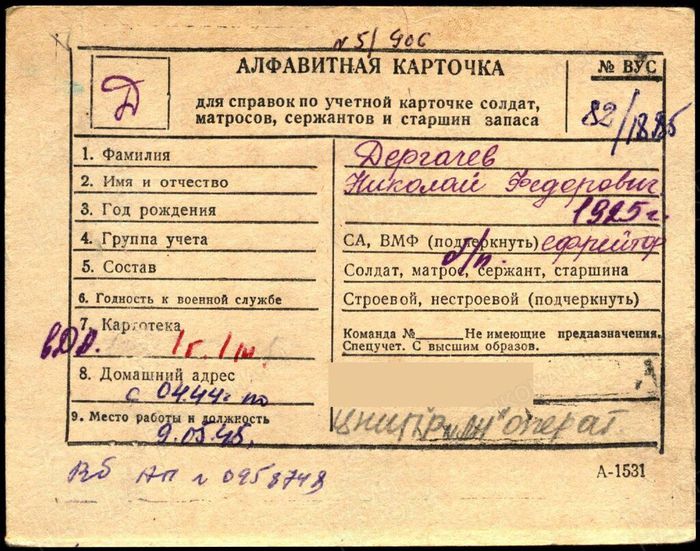 № 5/906
АЛФАВИТНАЯ КАРТОЧКА
№ ВУС
Д
для справок по учетной карточке солдат,
матросов, сержантов и старшин запаса
82/
1. Фамилия
Дергачев
2. Имя и отчество
Николай Федорович
3. Год рождения
1925 г.
4. Группа учета
СА, ВМФ (подчеркнуть) ефрейтор
5. Состав
б/п.
Солдат, матрос, сержант, старшина
6. Годность к военной службе
Строевой, нестроевой (подчеркнуть)
7. Картотека
Команда № Не имеющие предназначения.
Спецучет. С высшим образов.
8. Домашний адрес
с 04.44г по
9. Место работы и должность
9.05.45.
оператор
вб АП № 0958748
А-1531